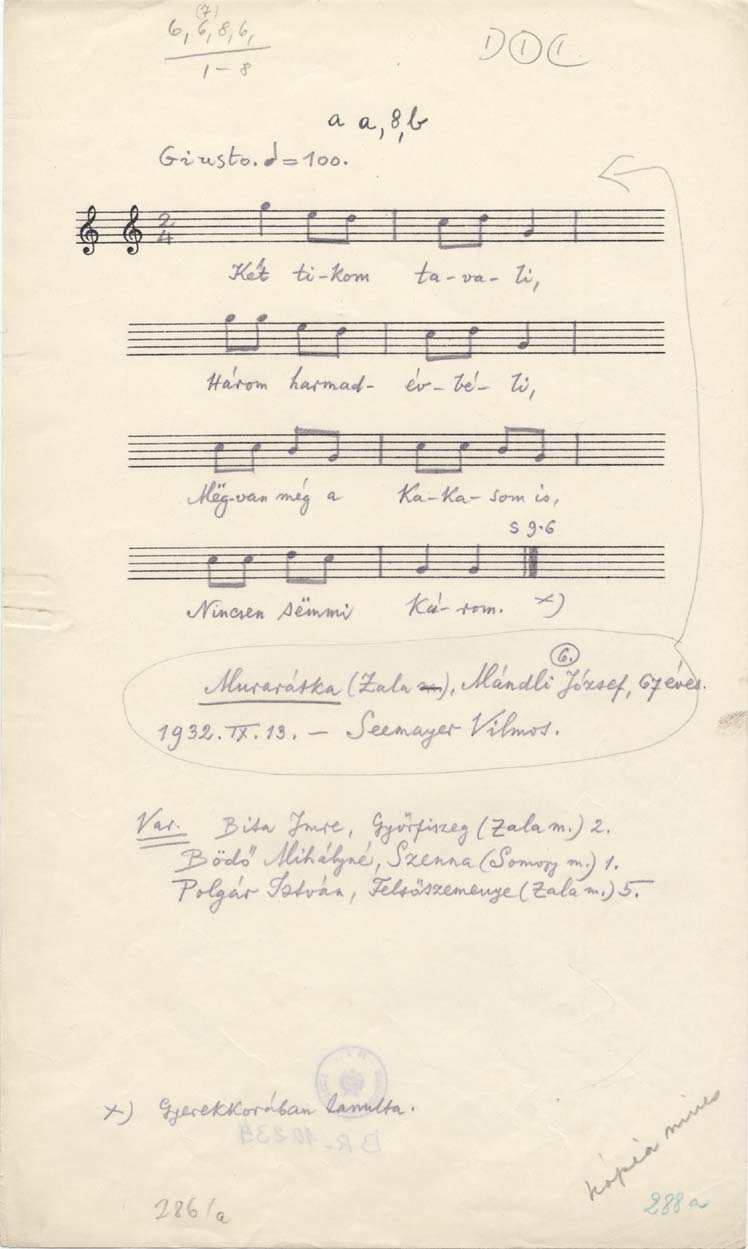 (7)
6, 6, 8, 6,
1-8
a a, 8, b
Giusto. ♩=100.
2
4
Két ti-kom ta-va-li,
Három harmad-év-bé-li,
Mëg-van még a Ka-ka-som is,
s 9.6
Nincsen sëmmi Ká-rom. x)
6.
Murarátka (Zala m), Mándli József, 67 éves.
1932. IX. 13. — Seemayer Vilmos.
Var. Bita Imre, Győrfiszeg (Zala m.) 2.
Bödő Mihályné, Szenna (Somogy m.) 1.
Polgár István, Felsőszemenye (Zala m.) 5.
x) Gyerekkorában tanulta.
BR. 10234
kópia nincs
286/a
288a